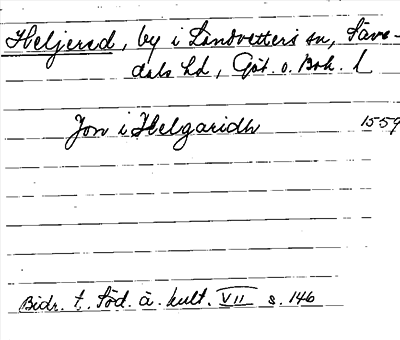 Heljered, by i Landvetters sn, Säve-
dals hd, Göt. o. Boh. l
Jon i Helgaridh 1559
Bidr. t. Söd. ä. kult. VII s. 146